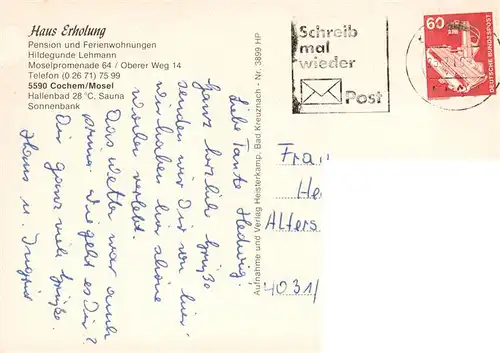 Haus Erholung
Pension und Ferienwohnungen
Hildegunde Lehmann
Moselpromenade 64 / Oberer Weg 14
Telefon (0 26 71) 75 99
5590 Cochem/Mosel
Hallenbad 28°C, Sauna
Sonnenbank
Schreib
mal
wieder
Post
60
DEUTSCHE BUNDESPOST
Liebe Tante Hedwig,
Ganz herzliche Grüße
senden wir Dir von hier.
wir haben hier schöne
verlebt.
Das Wetter war auch
prima. Wie geht es Dir?
Dir ganz viele Grüße.
Hans u. Ingrid
Aufnahme und Verlag Heisterkamp, Bad Kreuznach - Nr. 3899 HP
Frau
He
Alters
4031/